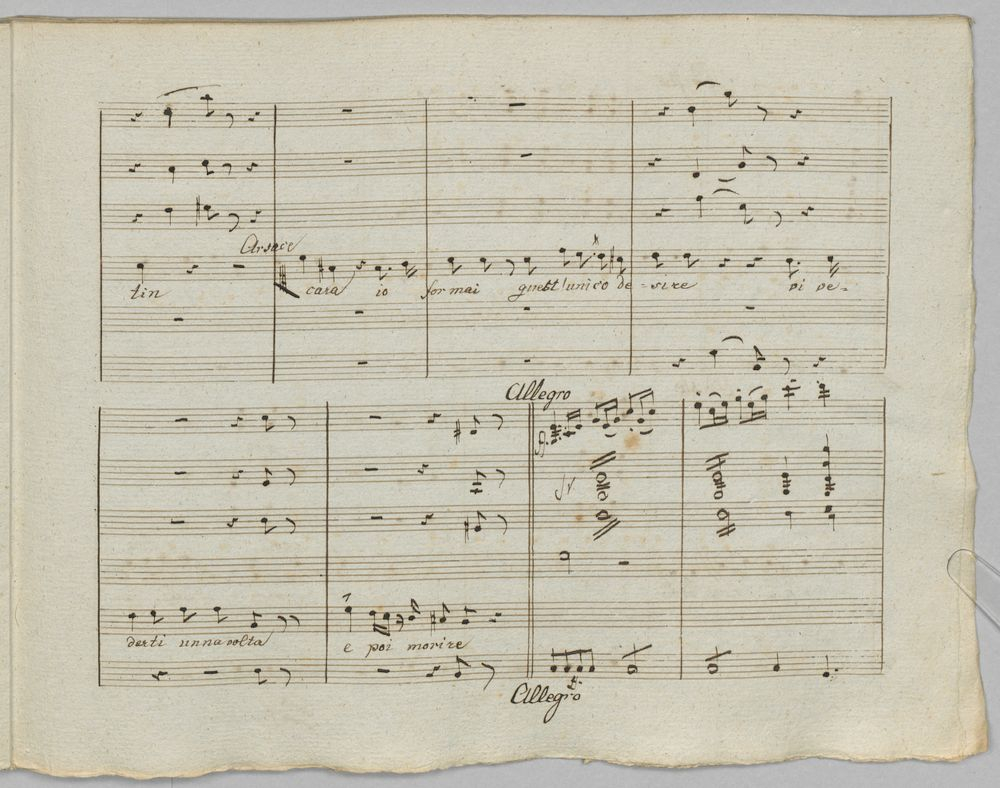 Arsace
tin cara io formai quest'unico de-sire pi ve-
Allegro
derti unna volta e poi morire
Allegro